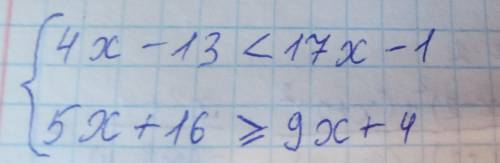 4x - 13 < 17x - 1
5x + 16 ⩾ 9x + 4